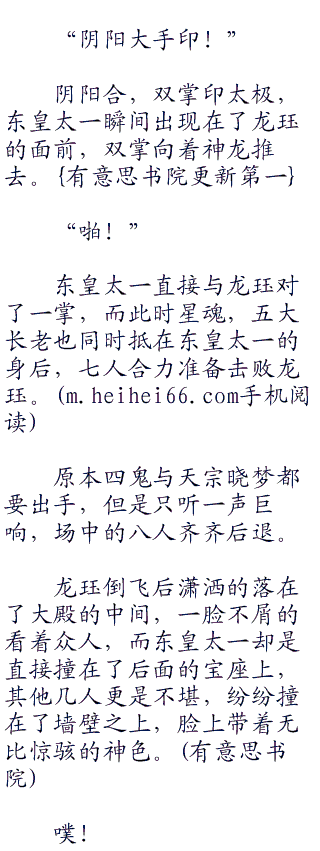 “阴阳大手印！”
阴阳合，双掌印太极，
东皇太一瞬间出现在了龙珏
的面前，双掌向着神龙推
去。{有意思书院更新第一}
“啪！”
东皇太一直接与龙珏对
了一掌，而此时星魂，五大
长老也同时抵在东皇太一的
身后，七人合力准备击败龙
珏。(m.heihei66.com手机阅
读)
原本四鬼与天宗晓梦都
要出手，但是只听一声巨
响，场中的八人齐齐后退。
龙珏倒飞后潇洒的落在
了大殿的中间，一脸不屑的
看着众人，而东皇太一却是
直接撞在了后面的宝座上，
其他几人更是不堪，纷纷撞
在了墙壁之上，脸上带着无
比惊骇的神色。(有意思书
院)
噗！